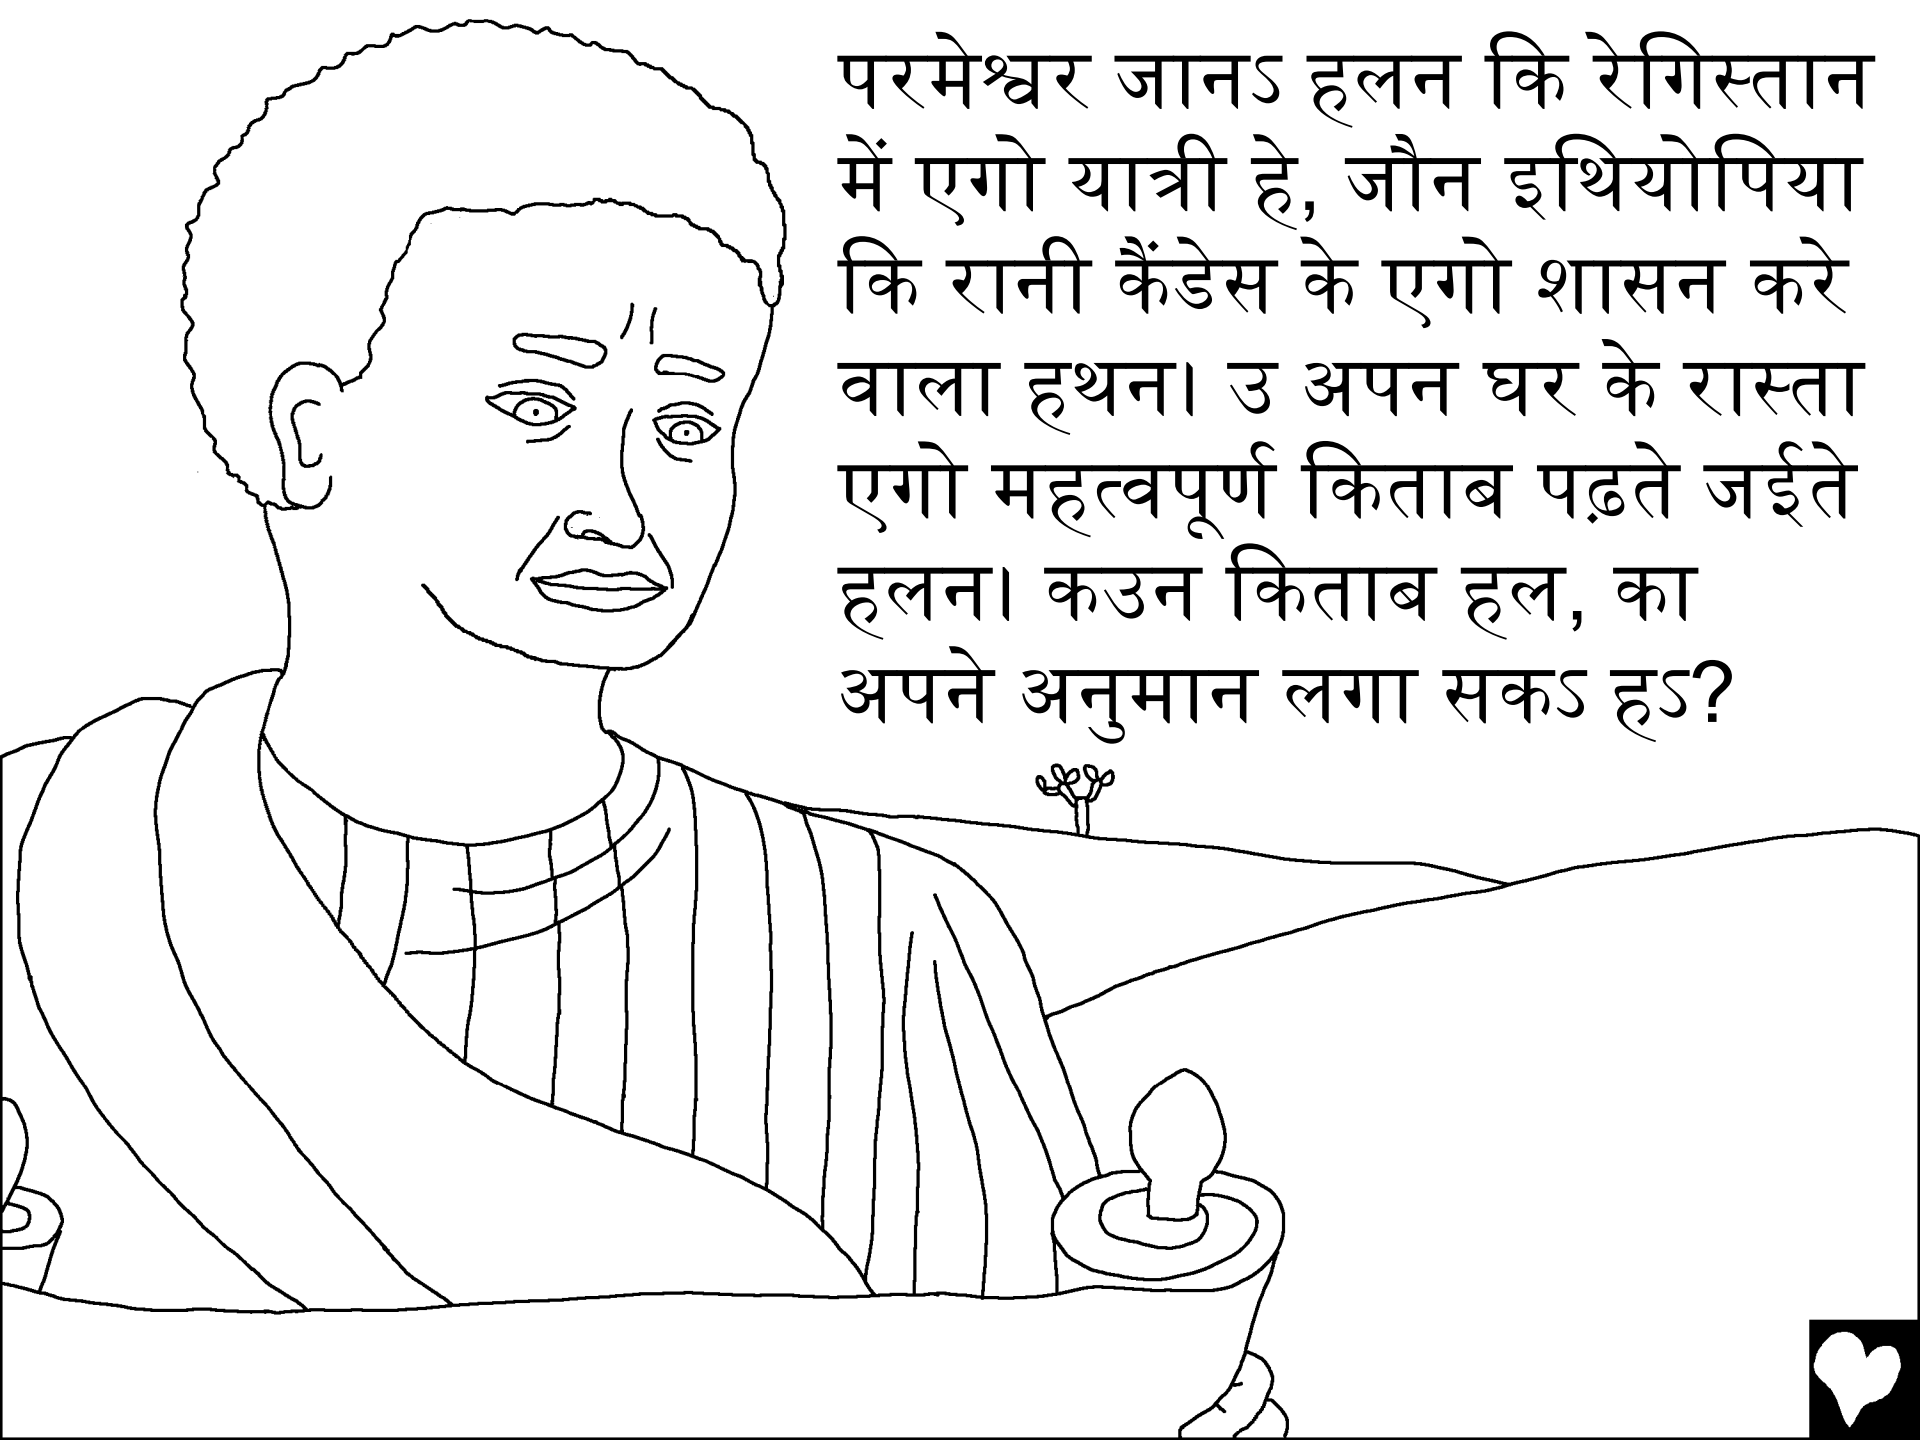 परमेश्वर जानऽ हलन कि रेगिस्तान
में एगो यात्री हे, जौन इथियोपिया
कि रानी कैंडेस के एगो शासन करे
वाला हथन। उ अपन घर के रास्ता
एगो महत्वपूर्ण किताब पढ़ते जईते
हलन। कउन किताब हल, का
अपने अनुमान लगा सकऽ हऽ?